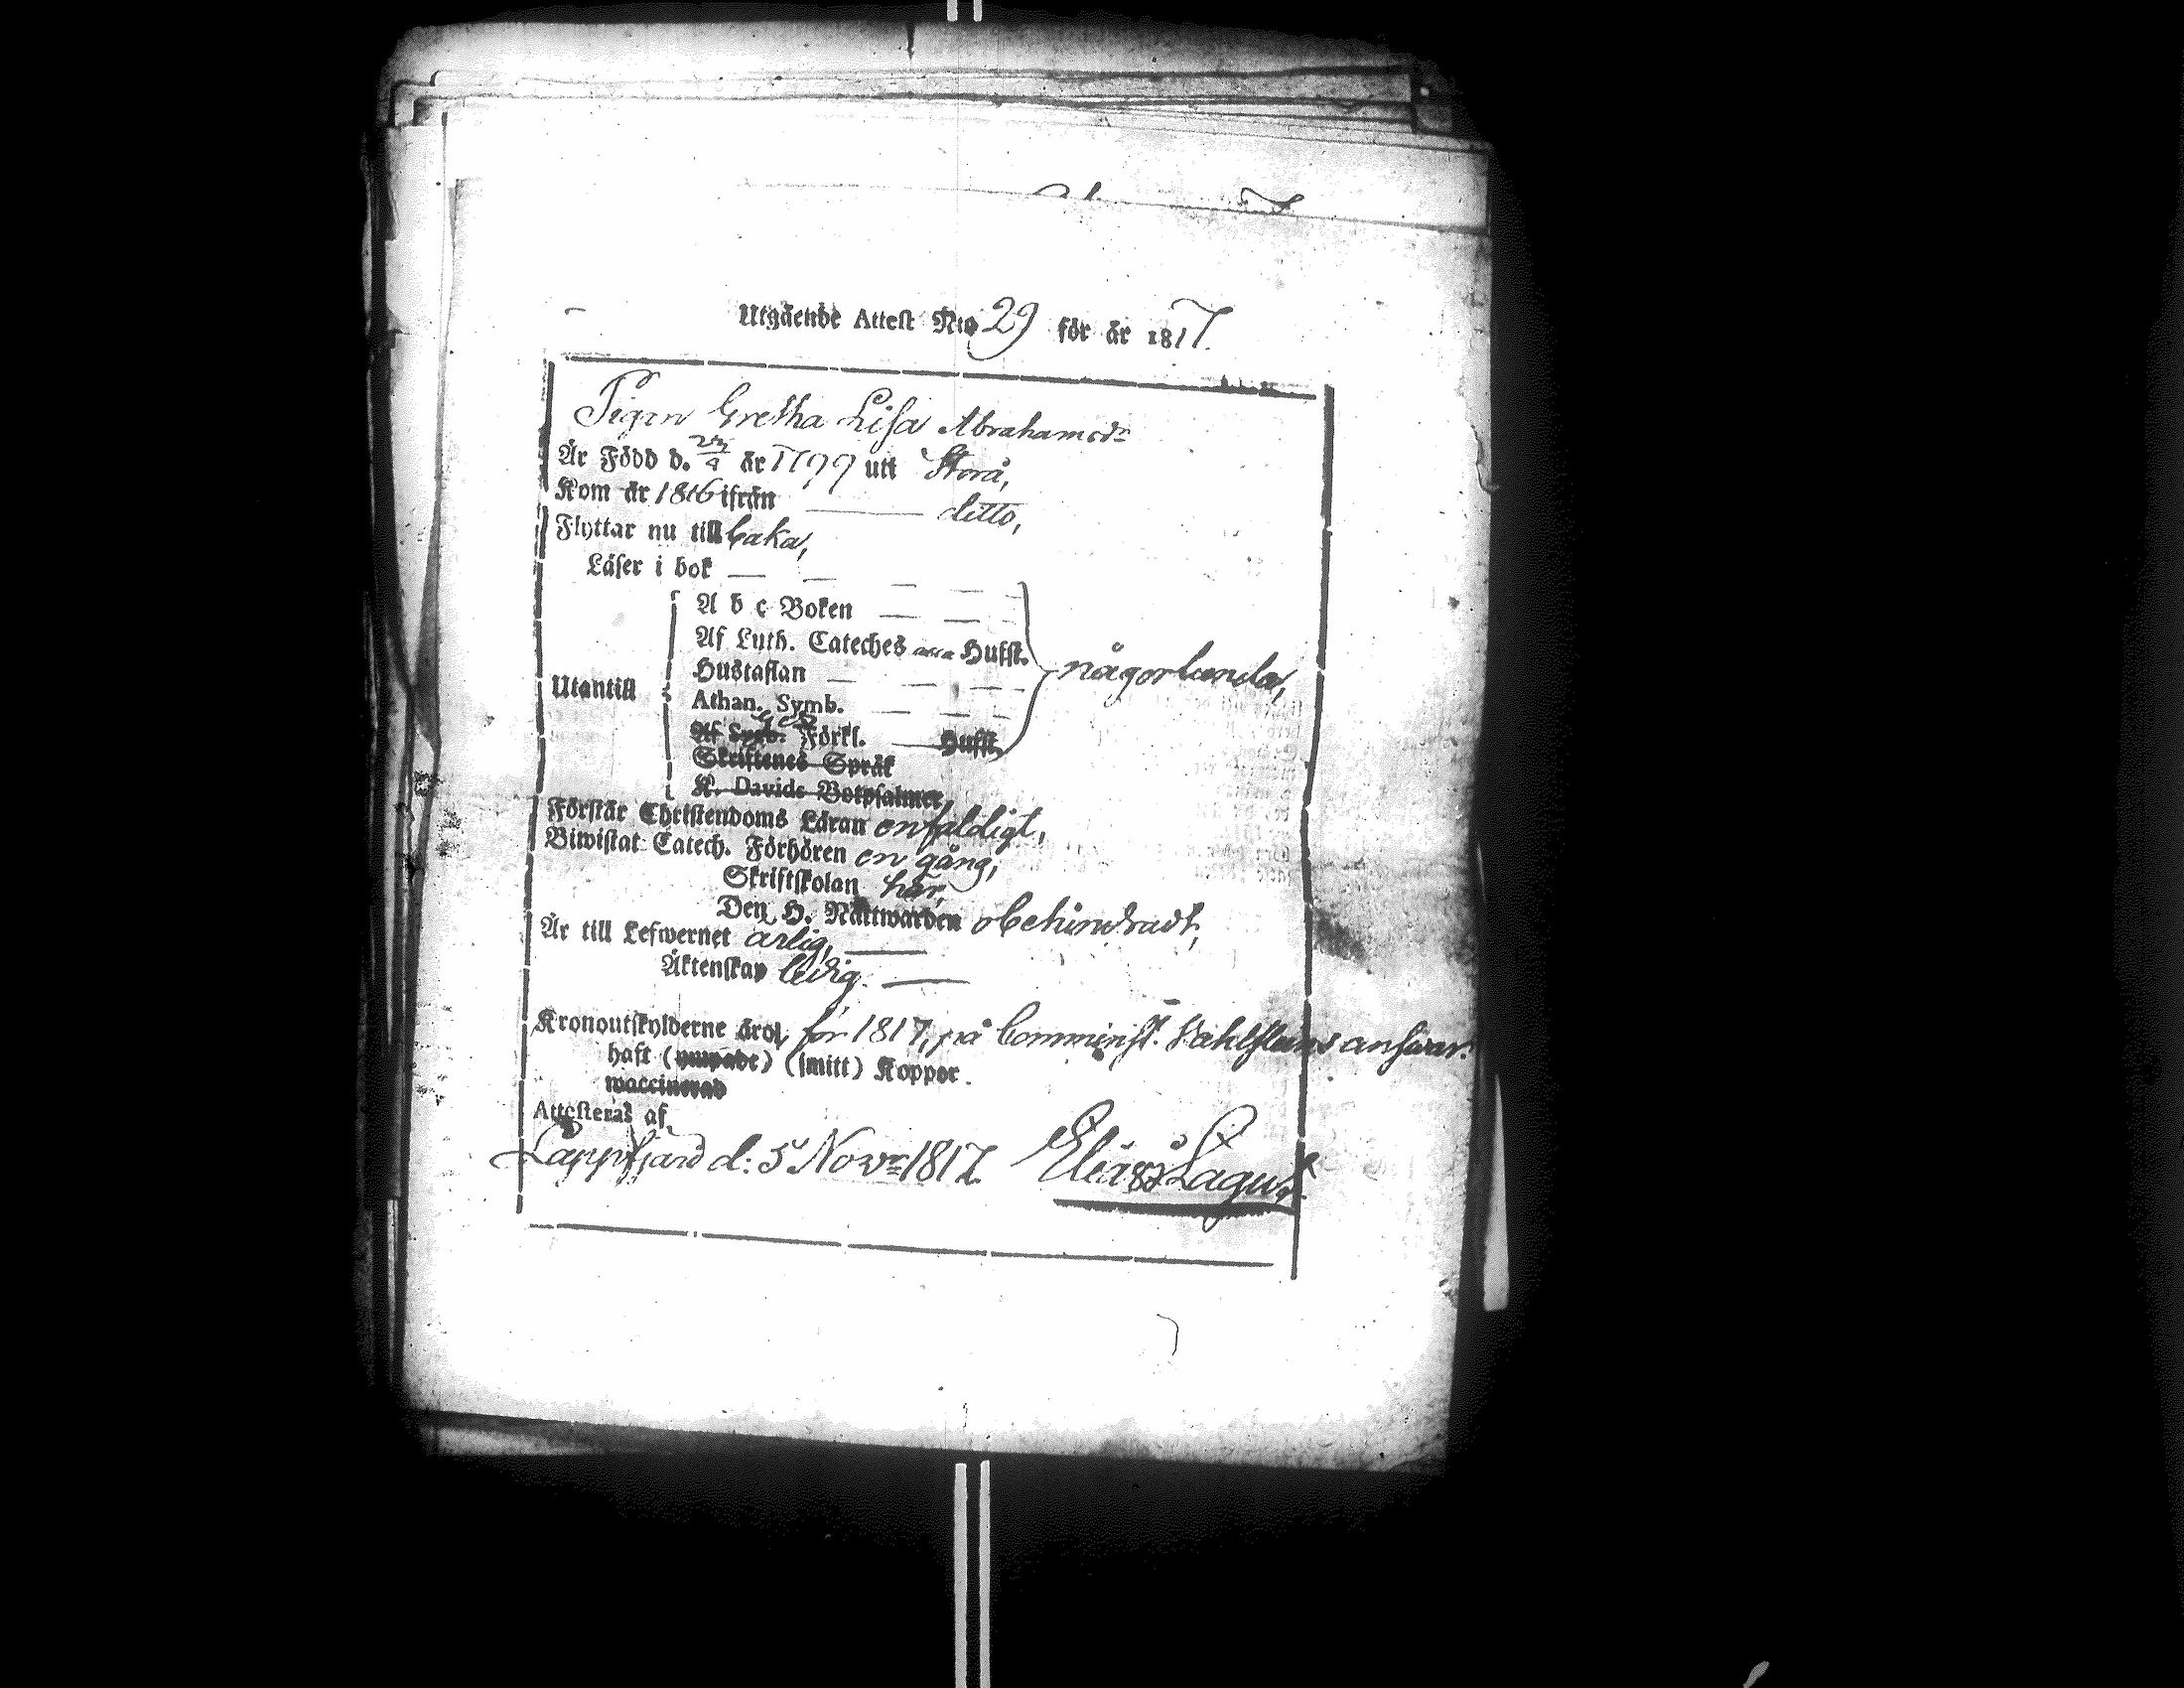 Utgående Attest N:o 29 för år 1817.
Pigan Gretha Lisa Abrahamsdr
Är Född d. 23/9 år 1799 utt Storå,
Kom år 1816 ifrån ——— ditto,
Flyttar nu till baka,
Läser i bok — — — — —
A b c Boken — — —
Af Luth. Cateches Hufst.
Hustaflan — — — —
någorlunda,
Utantill
Athan. Symb. — — —
Af Förkl. — Hufst.
Skriftenes Språk
K. Davids Botpsalmer
Förstår Christendoms Läran enfaldigt,
Biwistat Catech. Förhören en gång,
Skriftskolan här,
Den H. Nattwarden obehindradt,
Är till Lefwernet ärlig, ——
Äktenskap ledig. ——
Kronoutskylderne äro för 1817, på Comminist. Wahlsteins answar.
haft (ympadt) (smitt) Koppor.
waccinerad
Attesteras af,
Lappfjärd d: 5 Novr 1817. Elias Lagus